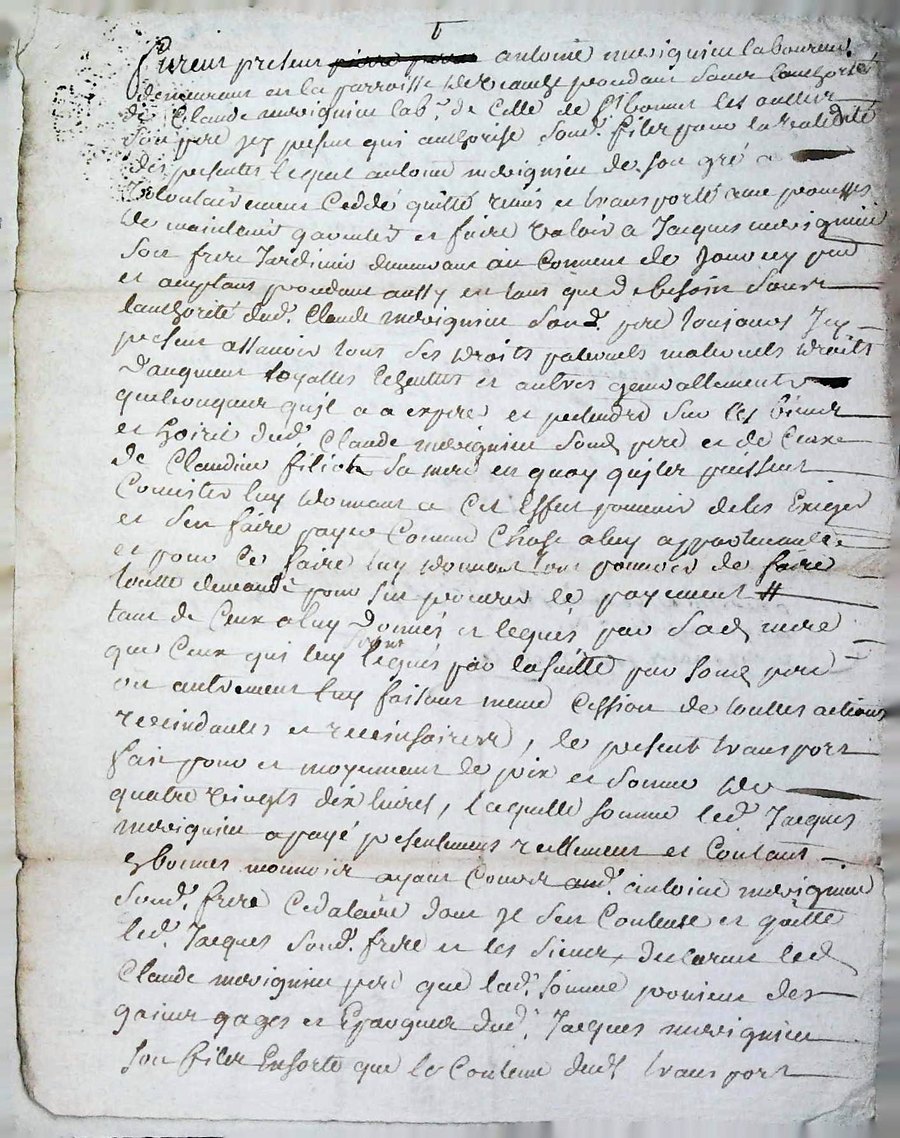 furent presens antoine mivignieu laboureur
demeurant en la parroisse de procedant sous lauthorité
de Claude mivignieu lab.r de Celle de St bonnet les oulles
son pere icy present qui authorise sond. fils pour la validité
des presentes lequel antoine mivignieu de son gré a
volontairement Ceddé quitté remis et transporté avec promesses
de maintenir garentir et faire valoir a Jacques mivignieu
son frere Jardinier demeurant au Couvent de
et acceptant procedant aussy en tant que de besoin sous
lauthorité dud. Claude mivignieu sond. pere toujours Icy
present assavoir tous ses droits paternels maternels droits
d'augment loyalles legitimes et autres generallement
quelconques qu'il a a exiger et pretendre sur les biens
et hoirie dud. Claude mivignieu sond. pere et de Ceux
de Claudine sa mere en quoy qu'ils puissent
Consister luy donnant a Cet Effet pouvoir de les Exiger
et sen faire payer Comme Chose a luy appartenante
et pour Ce faire luy donnant tout pouvoir de faire
toutte demande pour sen procurer le payement #
tant de Ceux a luy donnés et legués par sad. mere
que Ceux qui luy seront legués par la suitte par sond. pere
ou autrement luy faisant meme Cession de touttes actions
rescindantes et rescisoires, le present transport
fait pour et moyennant le prix et somme de
quatre vingts dix livres, laquelle somme led. Jacques
mivignieu a payé presentement reellement et Contant
en bonnes monnoie ayant Cours aud. antoine mivignieu
sond. frere Cedataire dont il sen Contente et quitte
led. Jacques sond. frere et les siens, declarant led.
Claude mivignieu pere que lad. somme provient des
gains gages et Epargnes dud. Jacques mivignieu
son fils Ensorte que le Contenu dud. transport